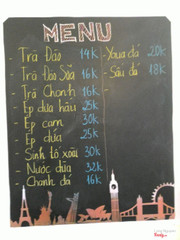 MENU
- Trà Đào 14K
- Trà Đào Sữa 16K
- Trà Chanh 16K
- Ép dưa hấu 25K
- Ép cam 30K
- Ép dứa 25K
- Sinh tố xoài 30K
- Nước dừa 32K
- Chanh đá 16K
- Xoua đá 20K
- Sấu đá 18K
-